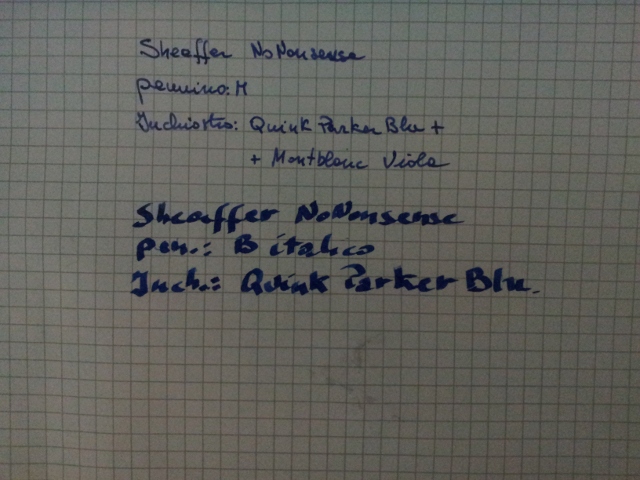 Sheaffer NoNonsense
pennino: M
Inchiostro: Quink Parker Blu +
+ Montblanc Viola
Sheaffer NoNonsense
pen.: B italico
Inch.: Quink Parker Blu.